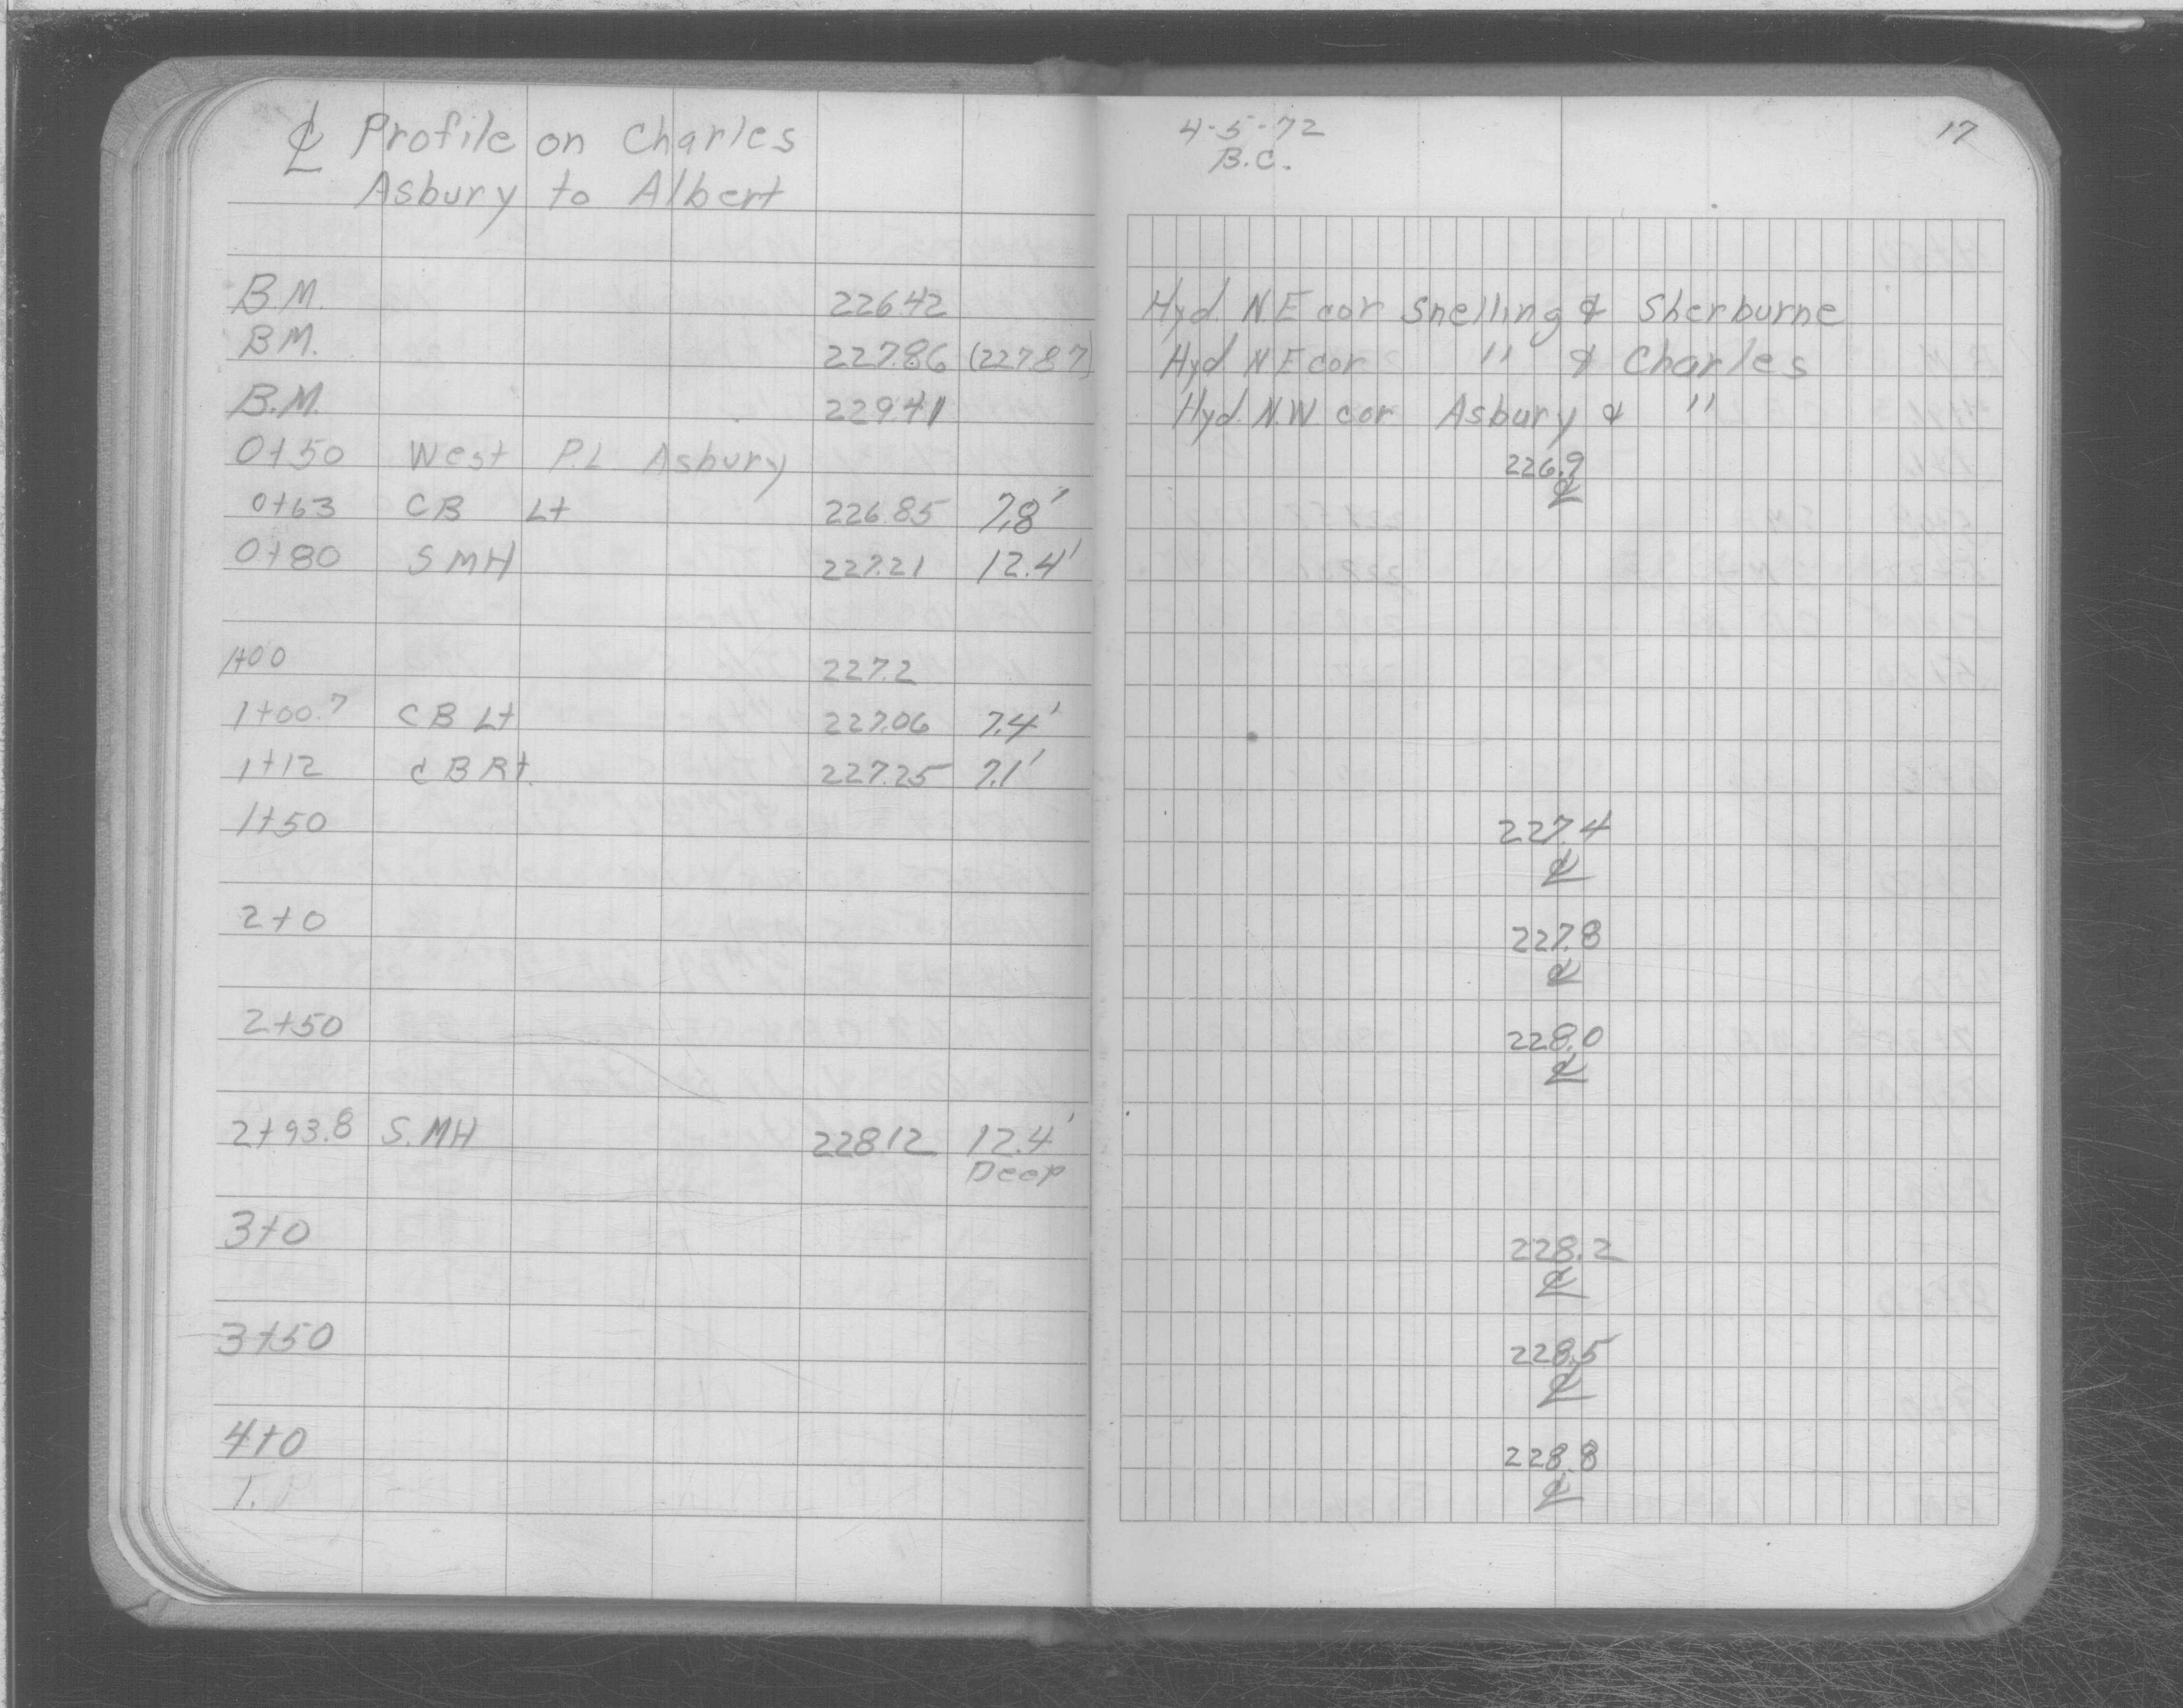 ℄ Profile on Charles
Asbury to Albert
4-5-72
B.C.
17
B.M. 226.42 Hyd. N.E cor Snelling & Sherburne
B.M. 227.86 (227.87) Hyd N E cor " & Charles
B.M. 229.41 Hyd. N.W. cor Asbury & "
0+50 West P.L. Asbury 226.9
℄
0+63 CB Lt 226.85 7.8'
0+80 S MH 227.21 12.4'
1+00 227.2
1+00.7 CB Lt 227.06 7.4'
1+12 CB Rt. 227.25 7.1'
1+50 227.4
℄
2+0 227.8
℄
2+50 228.0
℄
2+93.8 S. MH 228.12 12.4'
Deep
3+0 228.2
℄
3+50 228.5
℄
4+0 228.8
℄